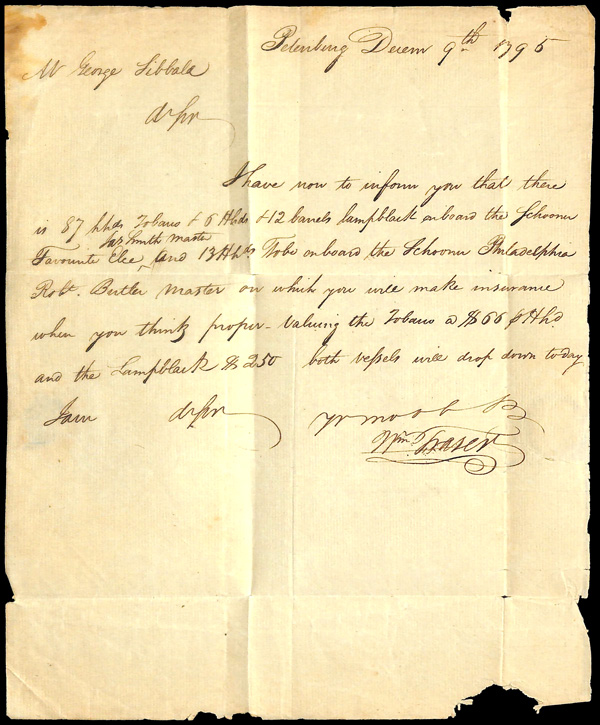 Petersburg Decem 9th 1795
Mr George Sibbald
D Sir
I have now to inform you that there
is 87 hhds Tobacco & 6 Hhds & 12 barrels lampblack on board the Schooner
Jas Smith master
Favourite Eliza, and 13 Hhds Tobo on board the Schooner Philadelphia
Robt. Butler Master on which you will make insurance
when you think proper - Valuing the Tobacco @ $66 Hhd
and the Lampblack $250 both vessels will drop down today
I am D Sir yr mo ob
Wm. Fraser